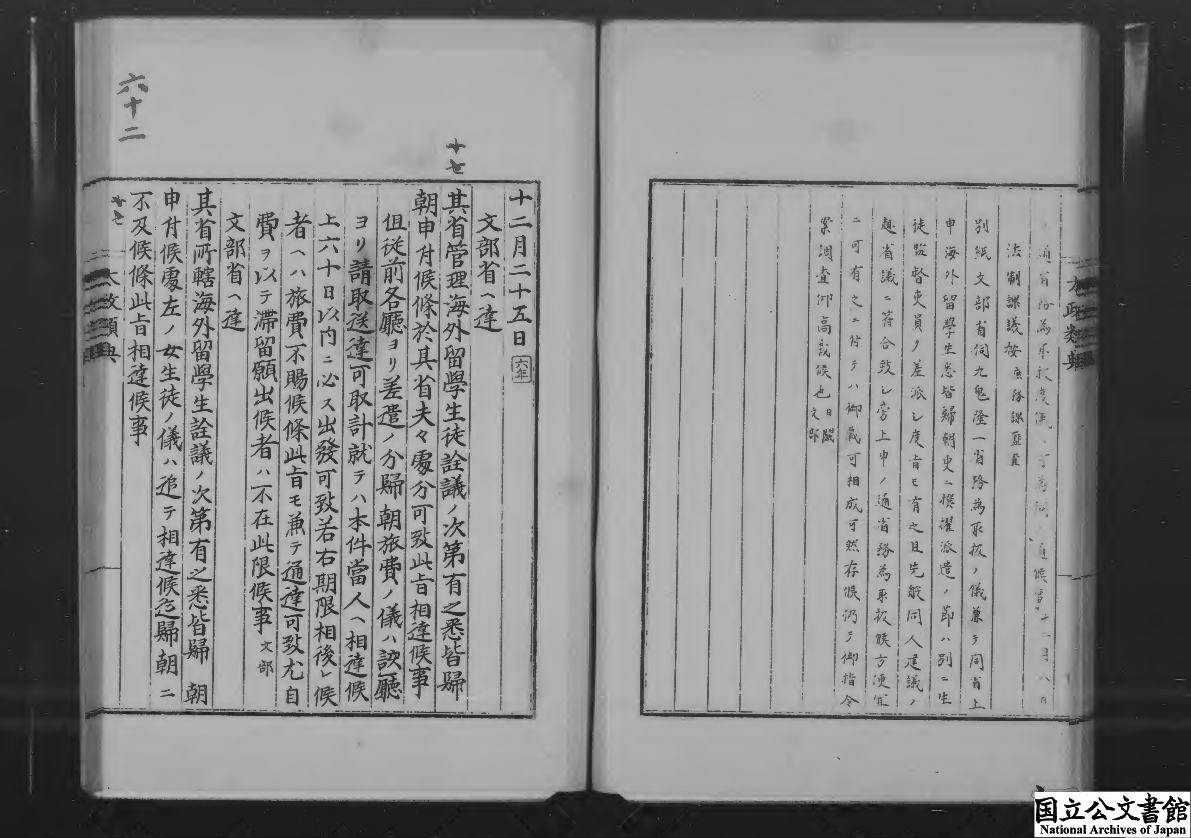 法制課議按
別紙文部省伺九鬼隆一省務為取扱ノ儀兼テ同省上
申海外留學生悉皆歸朝更ニ撰擢派遣ノ節ハ別ニ生
徒監督吏員ノ差派シ度旨モ有之且先般同人建議ノ
趣省議ニ符合致シ旁上申ノ通省務為取扱候方便宜
ニ可有之ニ付テハ御裁可相成可然存候仍テ御指令
案調查仰高裁候也
太政類典
六十二
十二月二十五日 六年
文部省ヘ達
其省管理海外留學生徒詮議ノ次第有之悉皆歸
朝申付候條於其省夫々處分可致此旨相達候事
但從前各廳ヨリ差遣ノ分歸朝旅費ノ儀ハ該廳
ヨリ請取送達可取計就テハ本件當人ヘ相達候
上六十日以内ニ必ス出發可致若右期限相後レ候
者ヘハ旅費不賜候條此旨モ兼テ通達可致尤自
費ヲ以テ滯留願出候者ハ不在此限候事 文部
文部省ヘ達
其省所轄海外留學生詮議ノ次第有之悉皆歸朝
申付候處左ノ女生徒ノ儀ハ追テ相達候迄歸朝ニ
不及候條此旨相達候事
太政類典
国立公文書館
National Archives of Japan